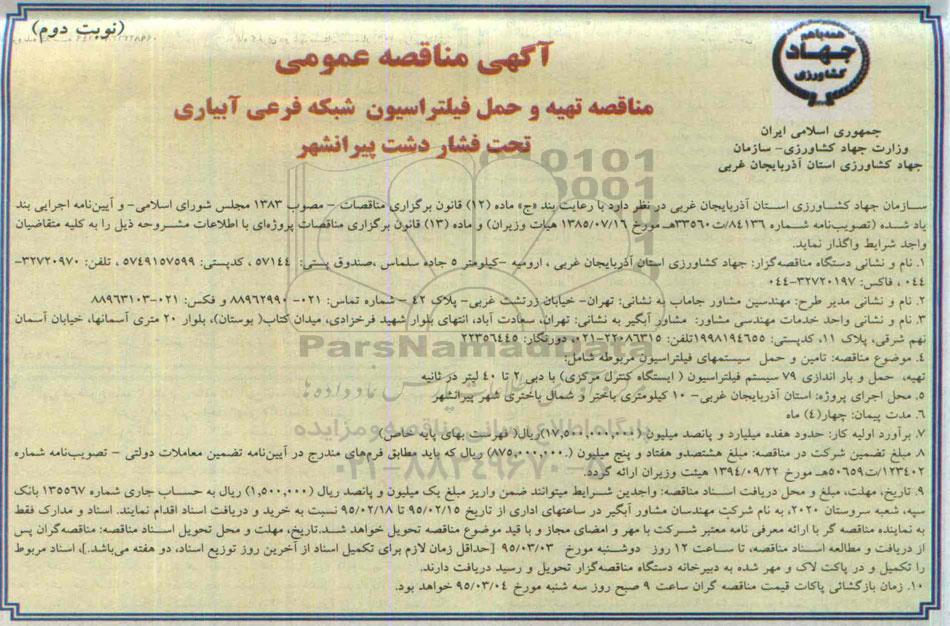 (نوبت دوم)
همه باهم
جهاد
کشاورزی
جمهوری اسلامی ایران
وزارت جهاد کشاورزی- سازمان
جهاد کشاورزی استان آذربایجان غربی
آگهی مناقصه عمومی
مناقصه تهیه و حمل فیلتراسیون شبکه فرعی آبیاری
تحت فشار دشت پیرانشهر
سازمان جهاد کشاورزی استان آذربایجان غربی در نظر دارد با رعایت بند «ج» ماده (۱۲) قانون برگزاری مناقصات – مصوب ۱۳۸۳ مجلس شورای اسلامی- و آیین‌نامه اجرایی بند
یاد شده (تصویب‌نامه شماره ۸۴۱۳۶/ت۳۳۵۶۰هـ مورخ ۱۳۸۵/۰۷/۱۶ هیات وزیران) و ماده (۱۳) قانون برگزاری مناقصات پروژه‌ای با اطلاعات مشروحه ذیل را به کلیه متقاضیان
واجد شرایط واگذار نماید.
۱. نام و نشانی دستگاه مناقصه‌گزار: جهاد کشاورزی استان آذربایجان غربی ، ارومیه –کیلومتر ۵ جاده سلماس ،صندوق پستی: ۵۷۱۴۴ ، کدپستی: ۵۷۴۹۱۵۷۵۹۹ ، تلفن: ۳۲۷۲۰۹۷۰-
۰۴۴ ، فاکس: ۳۲۷۲۰۱۹۷-۰۴۴
۲. نام و نشانی مدیر طرح: مهندسین مشاور جاماب به نشانی: تهران- خیابان زرتشت غربی- پلاک ۴۲ – شماره تماس: ۰۲۱- ۸۸۹۶۲۹۹۰ و فکس: ۰۲۱-۸۸۹۶۳۱۰۳
۳. نام و نشانی واحد خدمات مهندسی مشاور: مشاور آبگیر به نشانی: تهران، سعادت آباد، انتهای بلوار شهید فرخزادی، میدان کتاب( بوستان)، بلوار ۲۰ متری آسمانها، خیابان آسمان
نهم شرقی، پلاک ۱۱، کدپستی: ۱۹۹۸۱۹۴۶۵۵تلفن: ۲۲۰۸۶۳۱۵-۰۲۱، دورنگار: ۲۲۳۵۶۴۴۵
۴. موضوع مناقصه: تامین و حمل سیستمهای فیلتراسیون مربوطه شامل:
تهیه، حمل و بار اندازی ۷۹ سیستم فیلتراسیون ( ایستگاه کنترل مرکزی) با دبی ۲ تا ۴۰ لیتر در ثانیه
۵. محل اجرای پروژه: استان آذربایجان غربی- ۱۰ کیلومتری باختر و شمال باختری شهر پیرانشهر
۶. مدت پیمان: چهار(۴) ماه
۷. برآورد اولیه کار: حدود هفده میلیارد و پانصد میلیون (۱۷,۵۰۰,۰۰۰,۰۰۰)ریال( فهرست بهای پایه خاص)
۸. مبلغ تضمین شرکت در مناقصه: مبلغ هشتصدو هفتاد و پنج میلیون (۸۷۵,۰۰۰,۰۰۰.) ریال که باید مطابق فرم‌های مندرج در آیین‌نامه تضمین معاملات دولتی – تصویب‌نامه شماره
۱۲۳۴۰۲/ت۵۰۶۵۹هـ مورخ ۱۳۹۴/۰۹/۲۲ هیئت وزیران ارائه گردد.
۹. تاریخ، مهلت، مبلغ و محل دریافت اسناد مناقصه: واجدین شرایط میتوانند ضمن واریز مبلغ یک میلیون و پانصد ریال (۱,۵۰۰,۰۰۰) ریال به حساب جاری شماره ۱۳۵۵۶۷ بانک
سپه، شعبه سروستان ۲۰۲۰، به نام شرکت مهندسان مشاور آبگیر در ساعتهای اداری از تاریخ ۹۵/۰۲/۱۵ تا ۹۵/۰۲/۱۸ نسبت به خرید و دریافت اسناد اقدام نمایند. اسناد و مدارک فقط
به نماینده مناقصه گر با ارائه معرفی نامه معتبر شرکت با مهر و امضای مجاز و با قید موضوع مناقصه تحویل خواهد شد.تاریخ، مهلت و محل تحویل اسناد مناقصه: مناقصه‌گران پس
از دریافت و مطالعه اسناد مناقصه، تا ساعت ۱۲ روز دوشنبه مورخ ۹۵/۰۳/۰۳ [حداقل زمان لازم برای تکمیل اسناد از آخرین روز توزیع اسناد، دو هفته می‌باشد.]، اسناد مربوط
را تکمیل و در پاکت لاک و مهر شده به دبیرخانه دستگاه مناقصه‌گزار تحویل و رسید دریافت دارند.
۱۰. زمان بازگشائی پاکات قیمت مناقصه گران ساعت ۹ صبح روز سه شنبه مورخ ۹۵/۰۳/۰۴ خواهد بود.
ParsNamadData
پایگاه اطلاع رسانی مناقصه و مزایده
۰۲۱-۸۸۳۴۹۶۷۰